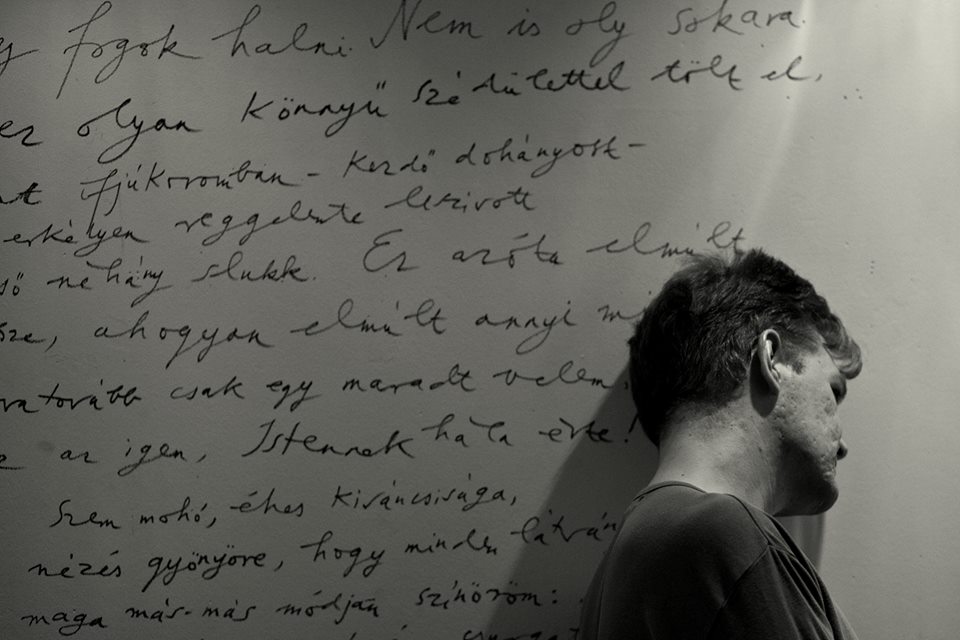 fogok halni. Nem is oly sokára.
ez olyan könnyű szédülettel tölt el,
ifjúkoromban – kezdő dohányost –
erkélyen reggelente leszívott
néhány slukk. Ez azóta elmúlt
ahogyan elmúlt annyi
csak egy maradt velem,
az igen, Istennek hála érte!
Szem mohó, éhes kíváncsisága,
nézés gyönyöre, hogy minden látván
maga más-más módján színöröm: